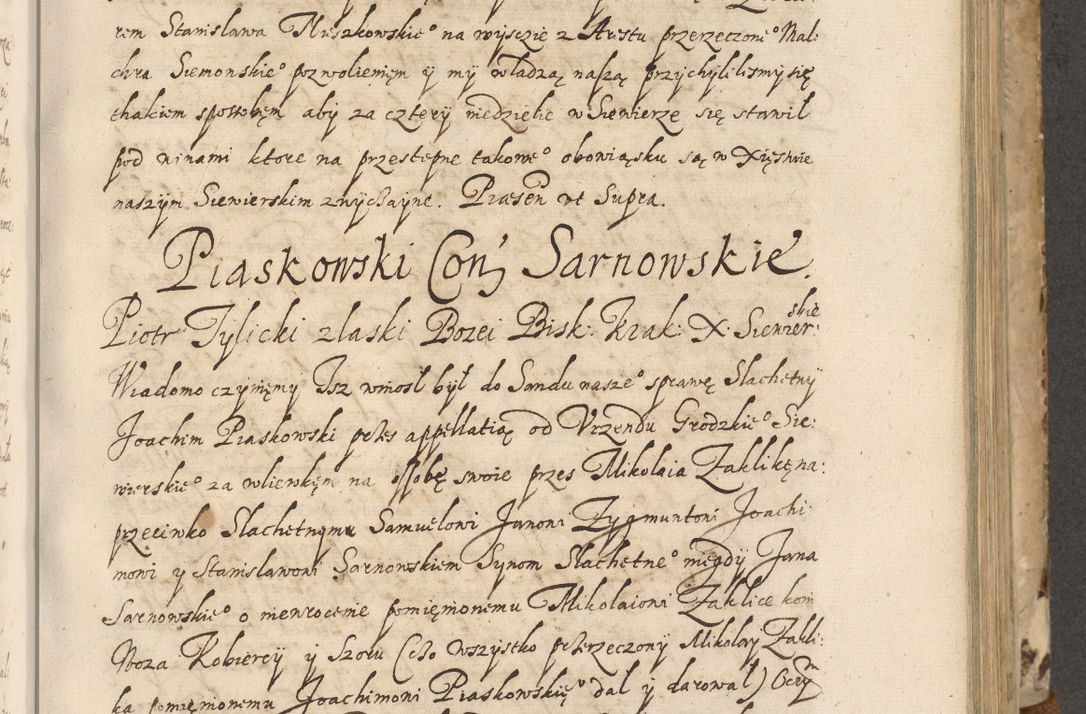 rem Stanisława Myszkowskie° na wyjscie z Arestu przerzeczone° Mal:
chra Siemonskie° pozwoleniem y my władzą naszą przychylilismy się
thakiem sposobem aby za cztery niedziele w Siewierze się stawił
pod winami ktore na przestepne takowe° obowiąsku są w Xięstwie
naszym Siewierskim zwyczayne. Præsen ut Supra.
Piaskowski Con Sarnowskie.
Piotr Tylicki z łaski Bozei Bisk: Krak: X: Siewier:skie
Wiadomo czyniemy Isz wniosł był do Sandu nasze° sprawę Slachetny
Joachim Piaskowski przes appellatią od Vrzendu Grodzkie° Sie:
wierskie° za wliewkem na ossobę swoie przes Mikolaia Zaklikę na:
przeciwko Slachetnymu Samuelowi Janowi Zygmuntowi Joachi:
mowi y Stanisławowi Sarnowskiem Synom Slachetne° niegdy Jana
Sarnowskie° o niewrocenie pomienionemu Mikolaiowi Zaklice kom
Woza Kobiercy y Szoru (czo wszystko przerzeczony Mikolay Zakli:
ka pomienionemu Joachimowi Piaskowskie° dal y darowal) Oczym